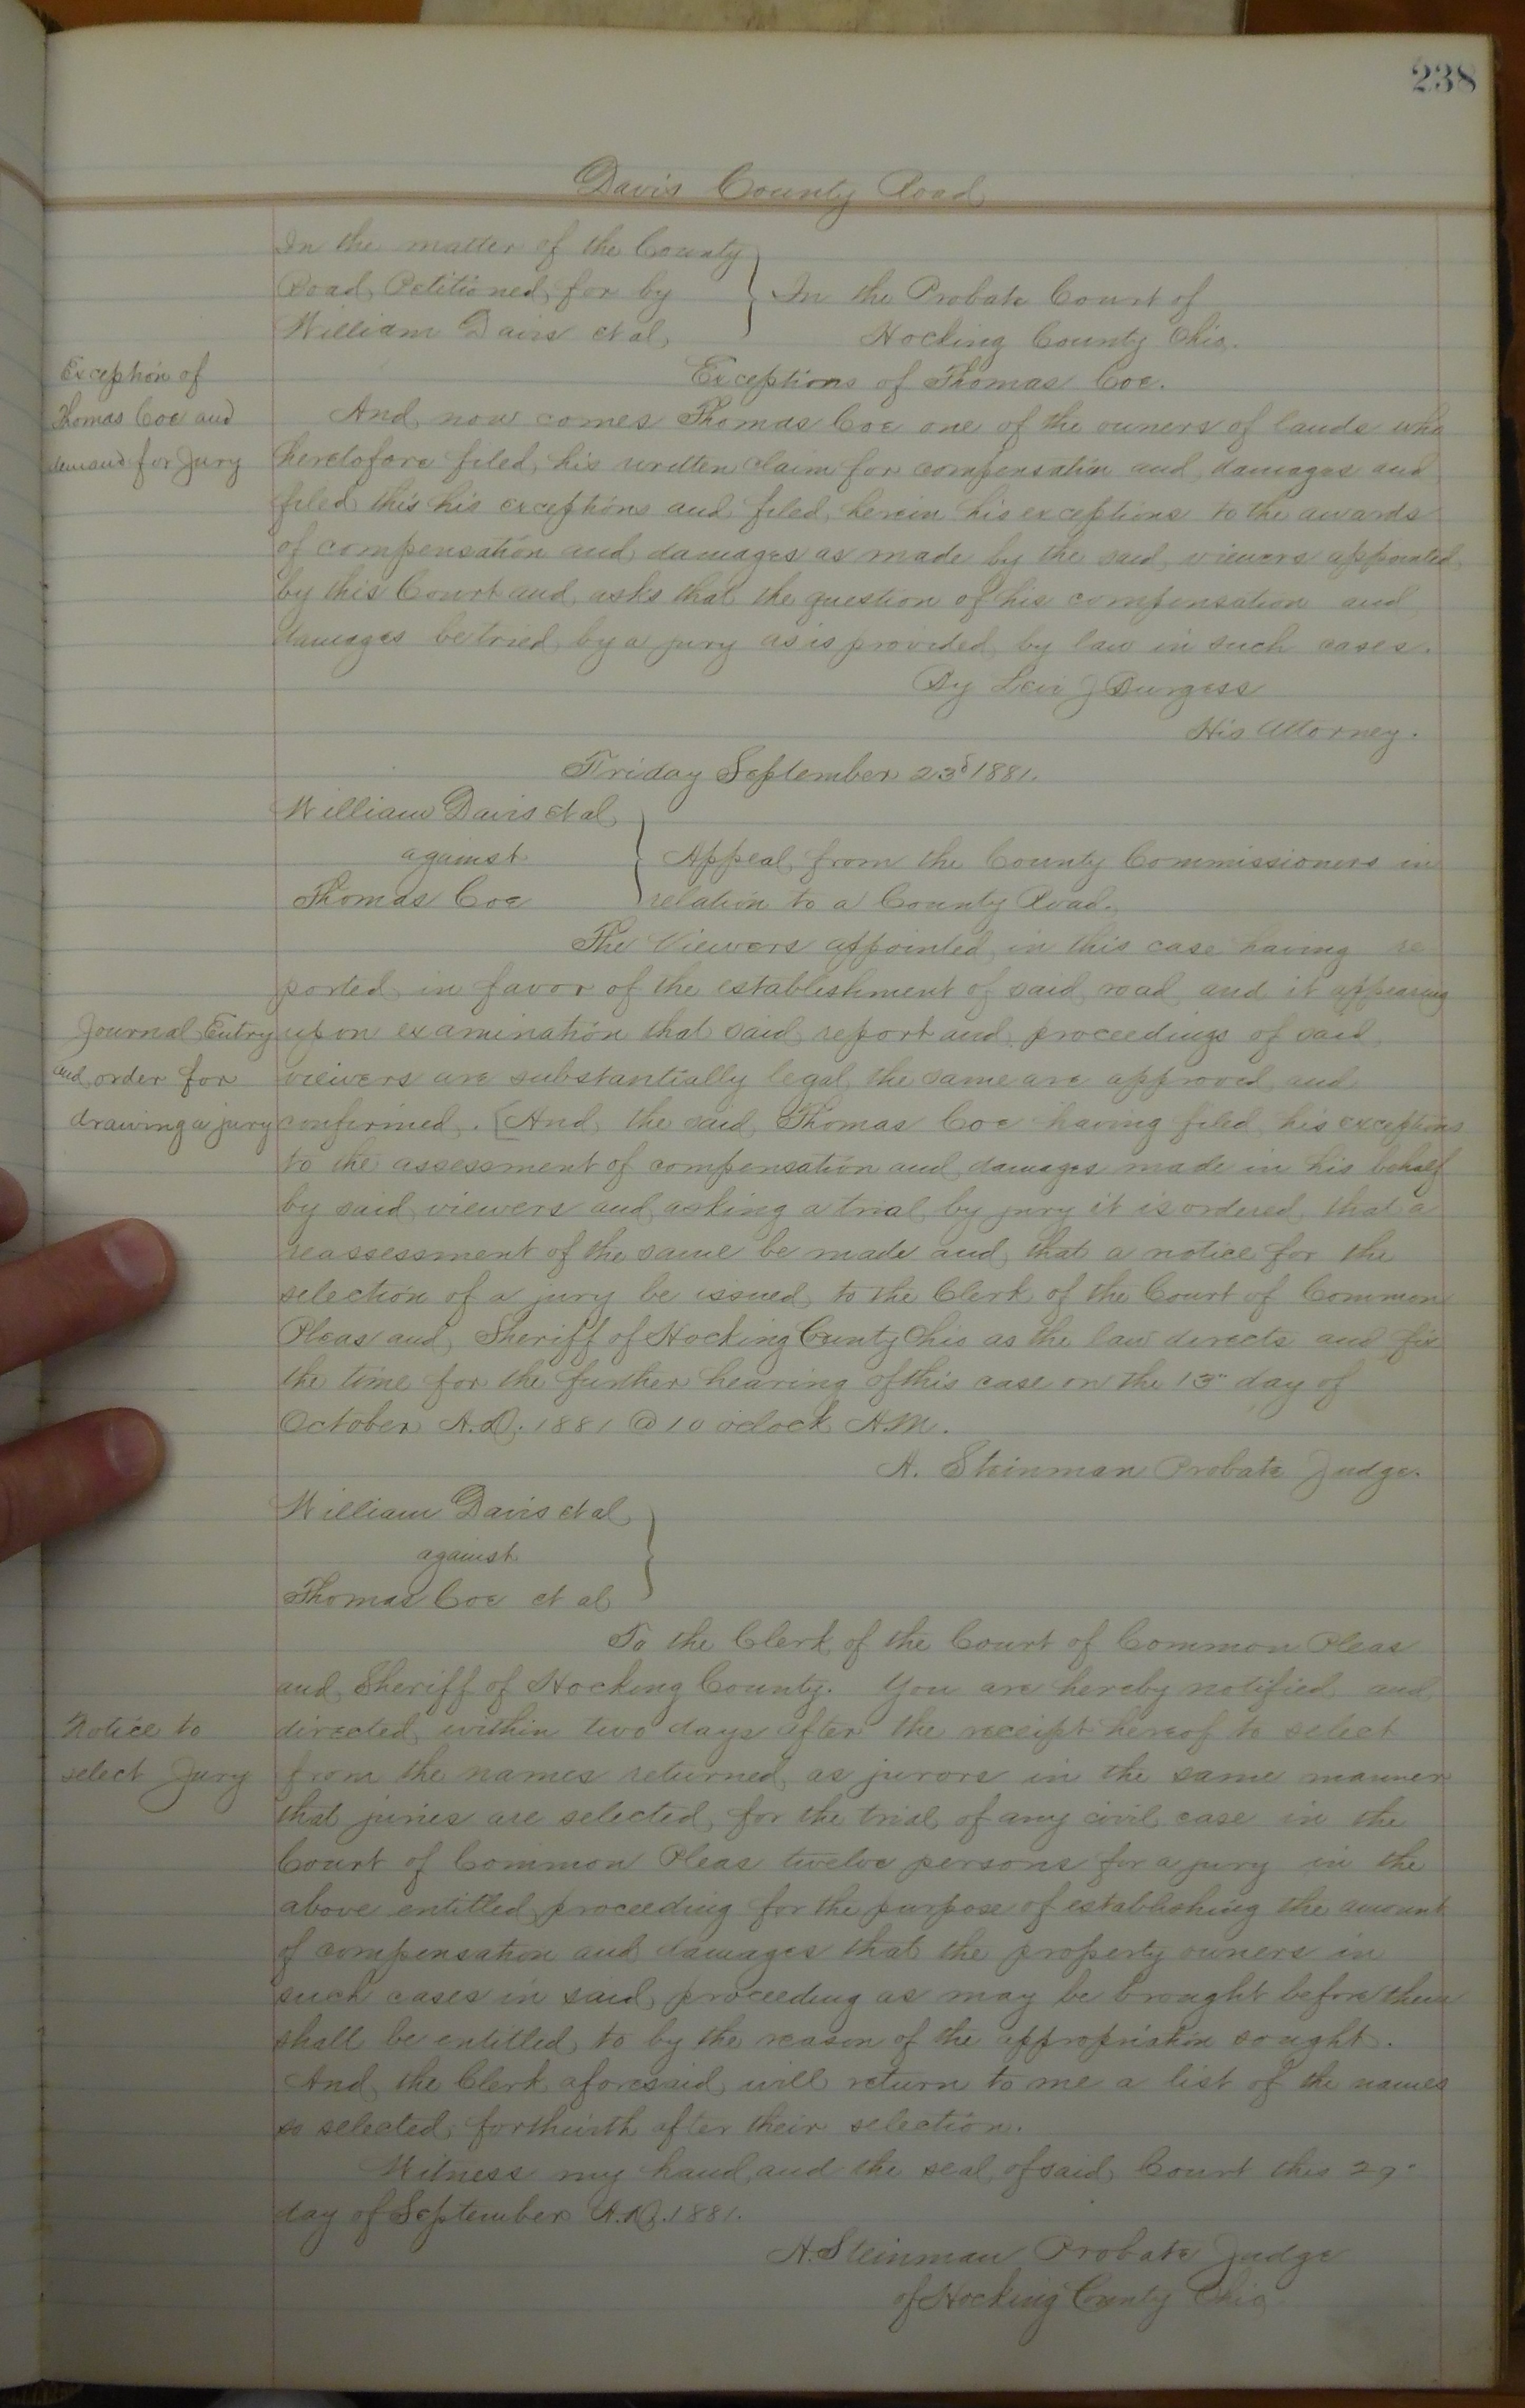 238
Davis County Road
In the matter of the County
Road Petitioned for by
William Davis et al
In the Probate Court of
Hocking County Ohio.
Exceptions of Thomas Coe.
Exception of
Thomas Coe and
demand for Jury
And now comes Thomas Coe one of the owners of lands who
heretofore filed his written claim for compensation and damages and
filed this his exceptions and filed herein his exceptions to the awards
of compensation and damages as made by the said viewers appointed
by this Court and asks that the question of his compensation and
damages be tried by a jury as is provided by law in such cases.
By Levi J Burgess
His Attorney.
Friday September 23d 1881.
William Davis et al
against
Thomas Coe
Appeal from the County Commissioners in
relation to a County Road.
The Viewers appointed in this case having re
ported in favor of the establishment of said road and it appearing
Journal Entry
and order for
drawing a jury
upon examination that said report and proceedings of said
viewers are substantially legal the same are approved and
confirmed. [And the said Thomas Coe having filed his exceptions
to the assessment of compensation and damages made in his behalf
by said viewers and asking a trial by jury it is ordered that a
reassessment of the same be made and that a notice for the
selection of a jury be issued to the Clerk of the Court of Common
Pleas and Sheriff of Hocking County Ohio as the law directs and fix
the time for the further hearing of this case on the 13" day of
October A.D. 1881 @ 10 oclock A.M.
A. Steinman Probate Judge.
William Davis et al
against
Thomas Coe et al
To the Clerk of the Court of Common Pleas
and Sheriff of Hocking County. You are hereby notified and
Notice to
select Jury
directed within two days after the receipt hereof to select
from the names returned as jurors in the same manner
that juries are selected for the trial of any civil case in the
Court of Common Pleas twelve persons for a jury in the
above entitled proceeding for the purpose of establishing the amount
of compensation and damages that the property owners in
such cases in said proceeding as may be brought before them
shall be entitled to by the reason of the appropriation sought.
And the Clerk aforesaid will return to me a list of the names
so selected forthwith after their selection.
Witness my hand and the seal of said Court this 29"
day of September A.D. 1881.
A. Steinman Probate Judge
of Hocking County Ohio